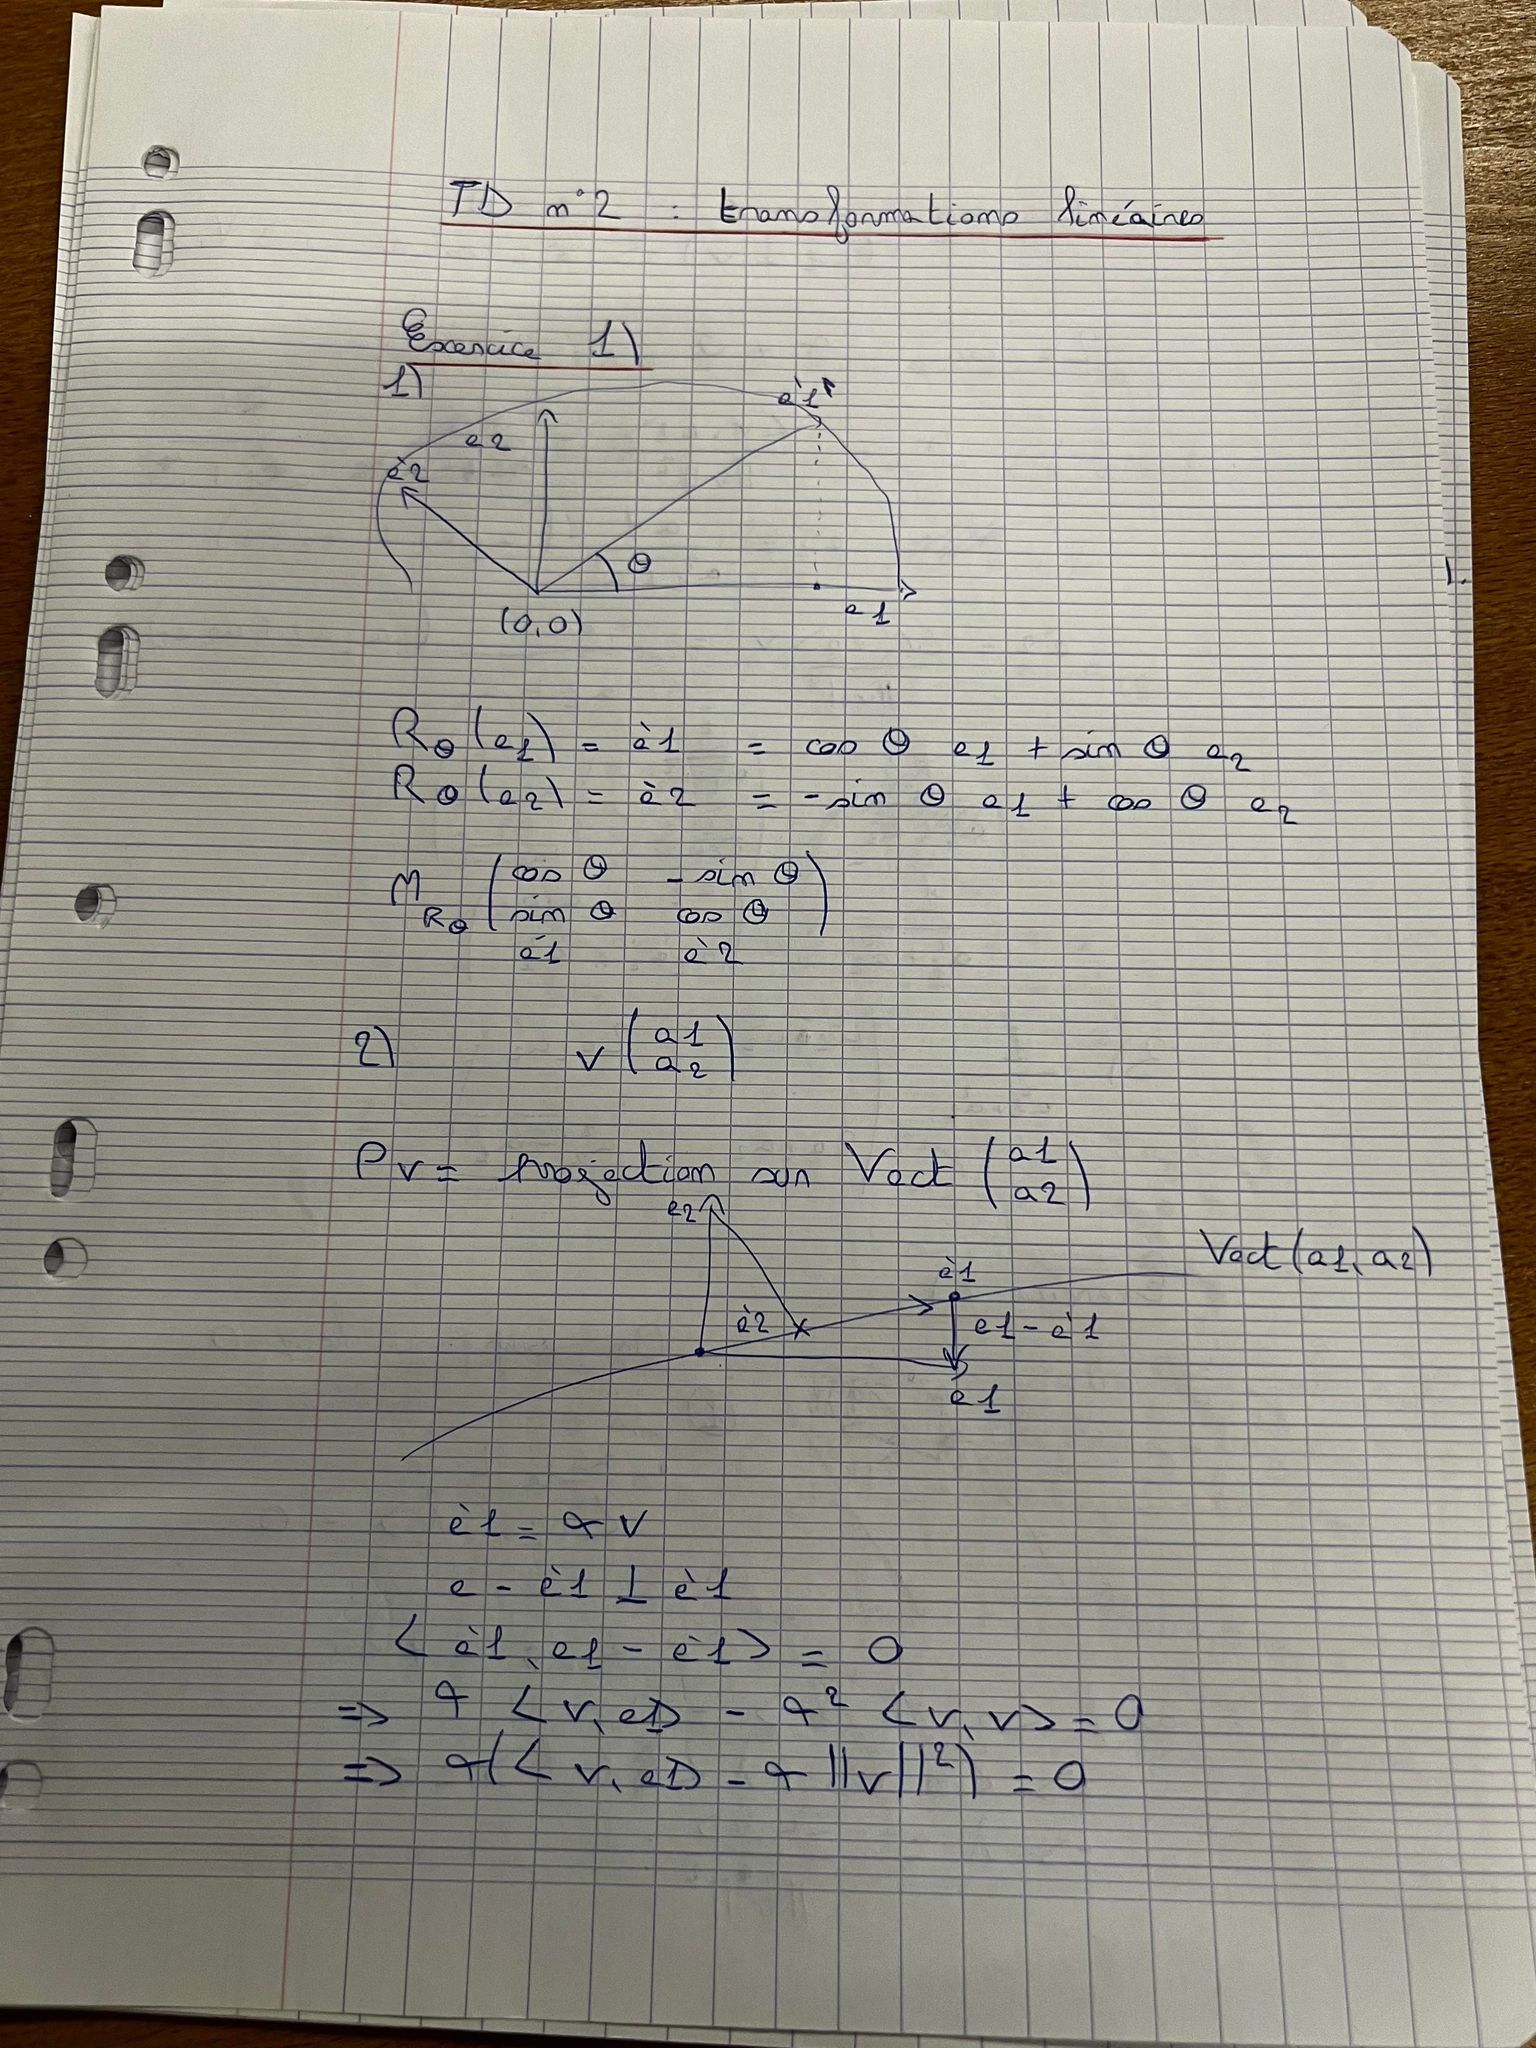 TD n°2 : transformations linéaires
Exercice 1)
1)
è1'
e2
è2
θ
(0,0)
e1
Rθ (e1) = è1 = cos θ e1 + sin θ e2
Rθ (e2) = è2 = - sin θ e1 + cos θ e2
M Rθ ( cos θ - sin θ )
( sin θ cos θ )
è1 è2
2) v ( a1 )
( a2 )
Pv = projection sur Vect ( a1 )
( a2 )
e2
Vect (a1, a2)
è1
è2
e1 - è1
e1
è1 = α v
e - è1 ⊥ è1
< è1, e1 - è1 > = 0
=> α < v, e1> - α² < v, v > = 0
=> α(< v, e1> - α ||v||²) = 0